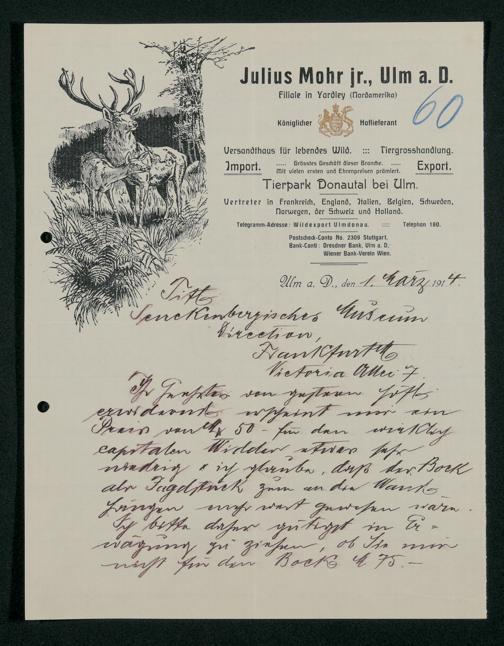 Julius Mohr jr., Ulm a. D.
Filiale in Yardley (Nordamerika)
60
Königlicher Hoflieferant
Versandthaus für lebendes Wild. ::: Tiergrosshandlung.
Import. Grösstes Geschäft dieser Branche. Export.
Mit vielen ersten und Ehrenpreisen prämiert.
Tierpark Donautal bei Ulm.
Vertreter in Frankreich, England, Italien, Belgien, Schweden,
Norwegen, der Schweiz und Holland.
Telegramm-Adresse: Wildexport Ulmdonau. Telephon 180.
Postscheck-Conto No. 2309 Stuttgart.
Bank-Conti: Dresdner Bank, Ulm a. D.
Wiener Bank-Verein Wien.
Ulm a. D., den 1. März 1914.
Titl.
Senckenbergisches Museum
Direction,
Frankfurt
Victoria Allee 7.
Ihr Geehrtes von gestern höfl.
erwidernd, erscheint mir ein
Preis von M 50.- für den wirklich
capitalen Widder etwas sehr
niedrig & ich glaube, daß der Bock
als Jagdstück zum an die Wand
hängen mehr wert gewesen wäre.
Ich bitte daher gütigst in Er=
wägung zu ziehen, ob Sie mir
nicht für den Bock M 75.-